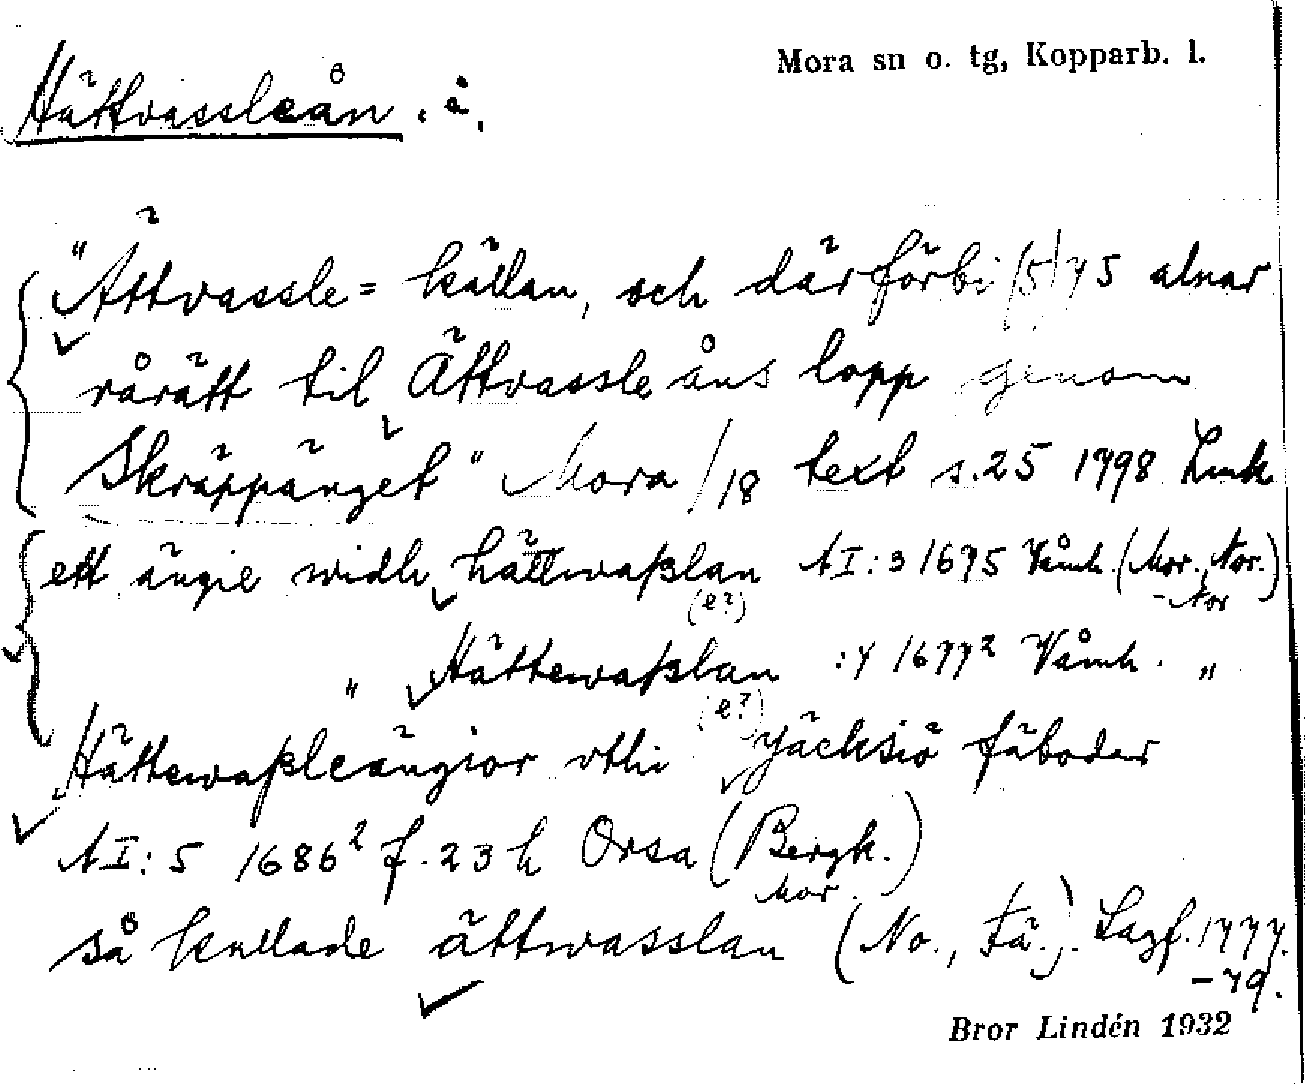 Mora sn o. tg, Kopparb. l.
Hättvassleån. å.
"Ättvassle= källan, och därförbi (5) 75 alnar
rårätt til Ättvassleåns lopp genom
Skräppänget" Mora /18 text s.25 1798 Lmk
ett ängie widh hättwaßlan AI:3 1675 Våmh. (Mor., Nor.)
(e?) -Nor
" Hättewaßlan :4 1677² Våmh. "
(e?)
Hättewaßleängior vthi Jäcksiö fäboder
AI:5 1686² f.23h Orsa (Bergk.)
Mor
så kallade ättwasslan (No., Fä.). Lagf. 1777.
-79.
Bror Lindén 1932